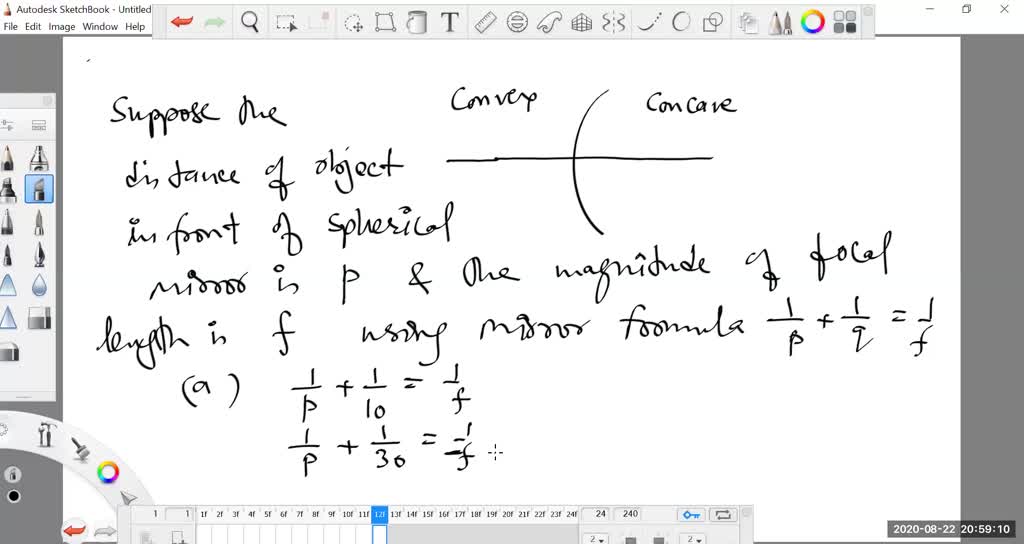 Autodesk SketchBook - Untitled
File Edit Image Window Help
T
Suppose the
distance of object
in front of spherical
mirror is p & the magnitude of focal
length is f using mirror formula 1/p + 1/q = 1/f
Convex
Concave
(a) 1/p + 1/10 = 1/f
1/p + 1/30 = -1/f
1 1 1f 2f 3f 4f 5f 6f 7f 8f 9f 10f 11f 12f 13f 14f 15f 16f 17f 18f 19f 20f 21f 22f 23f 24f 24 240
2 2
2020-08-22 20:59:10